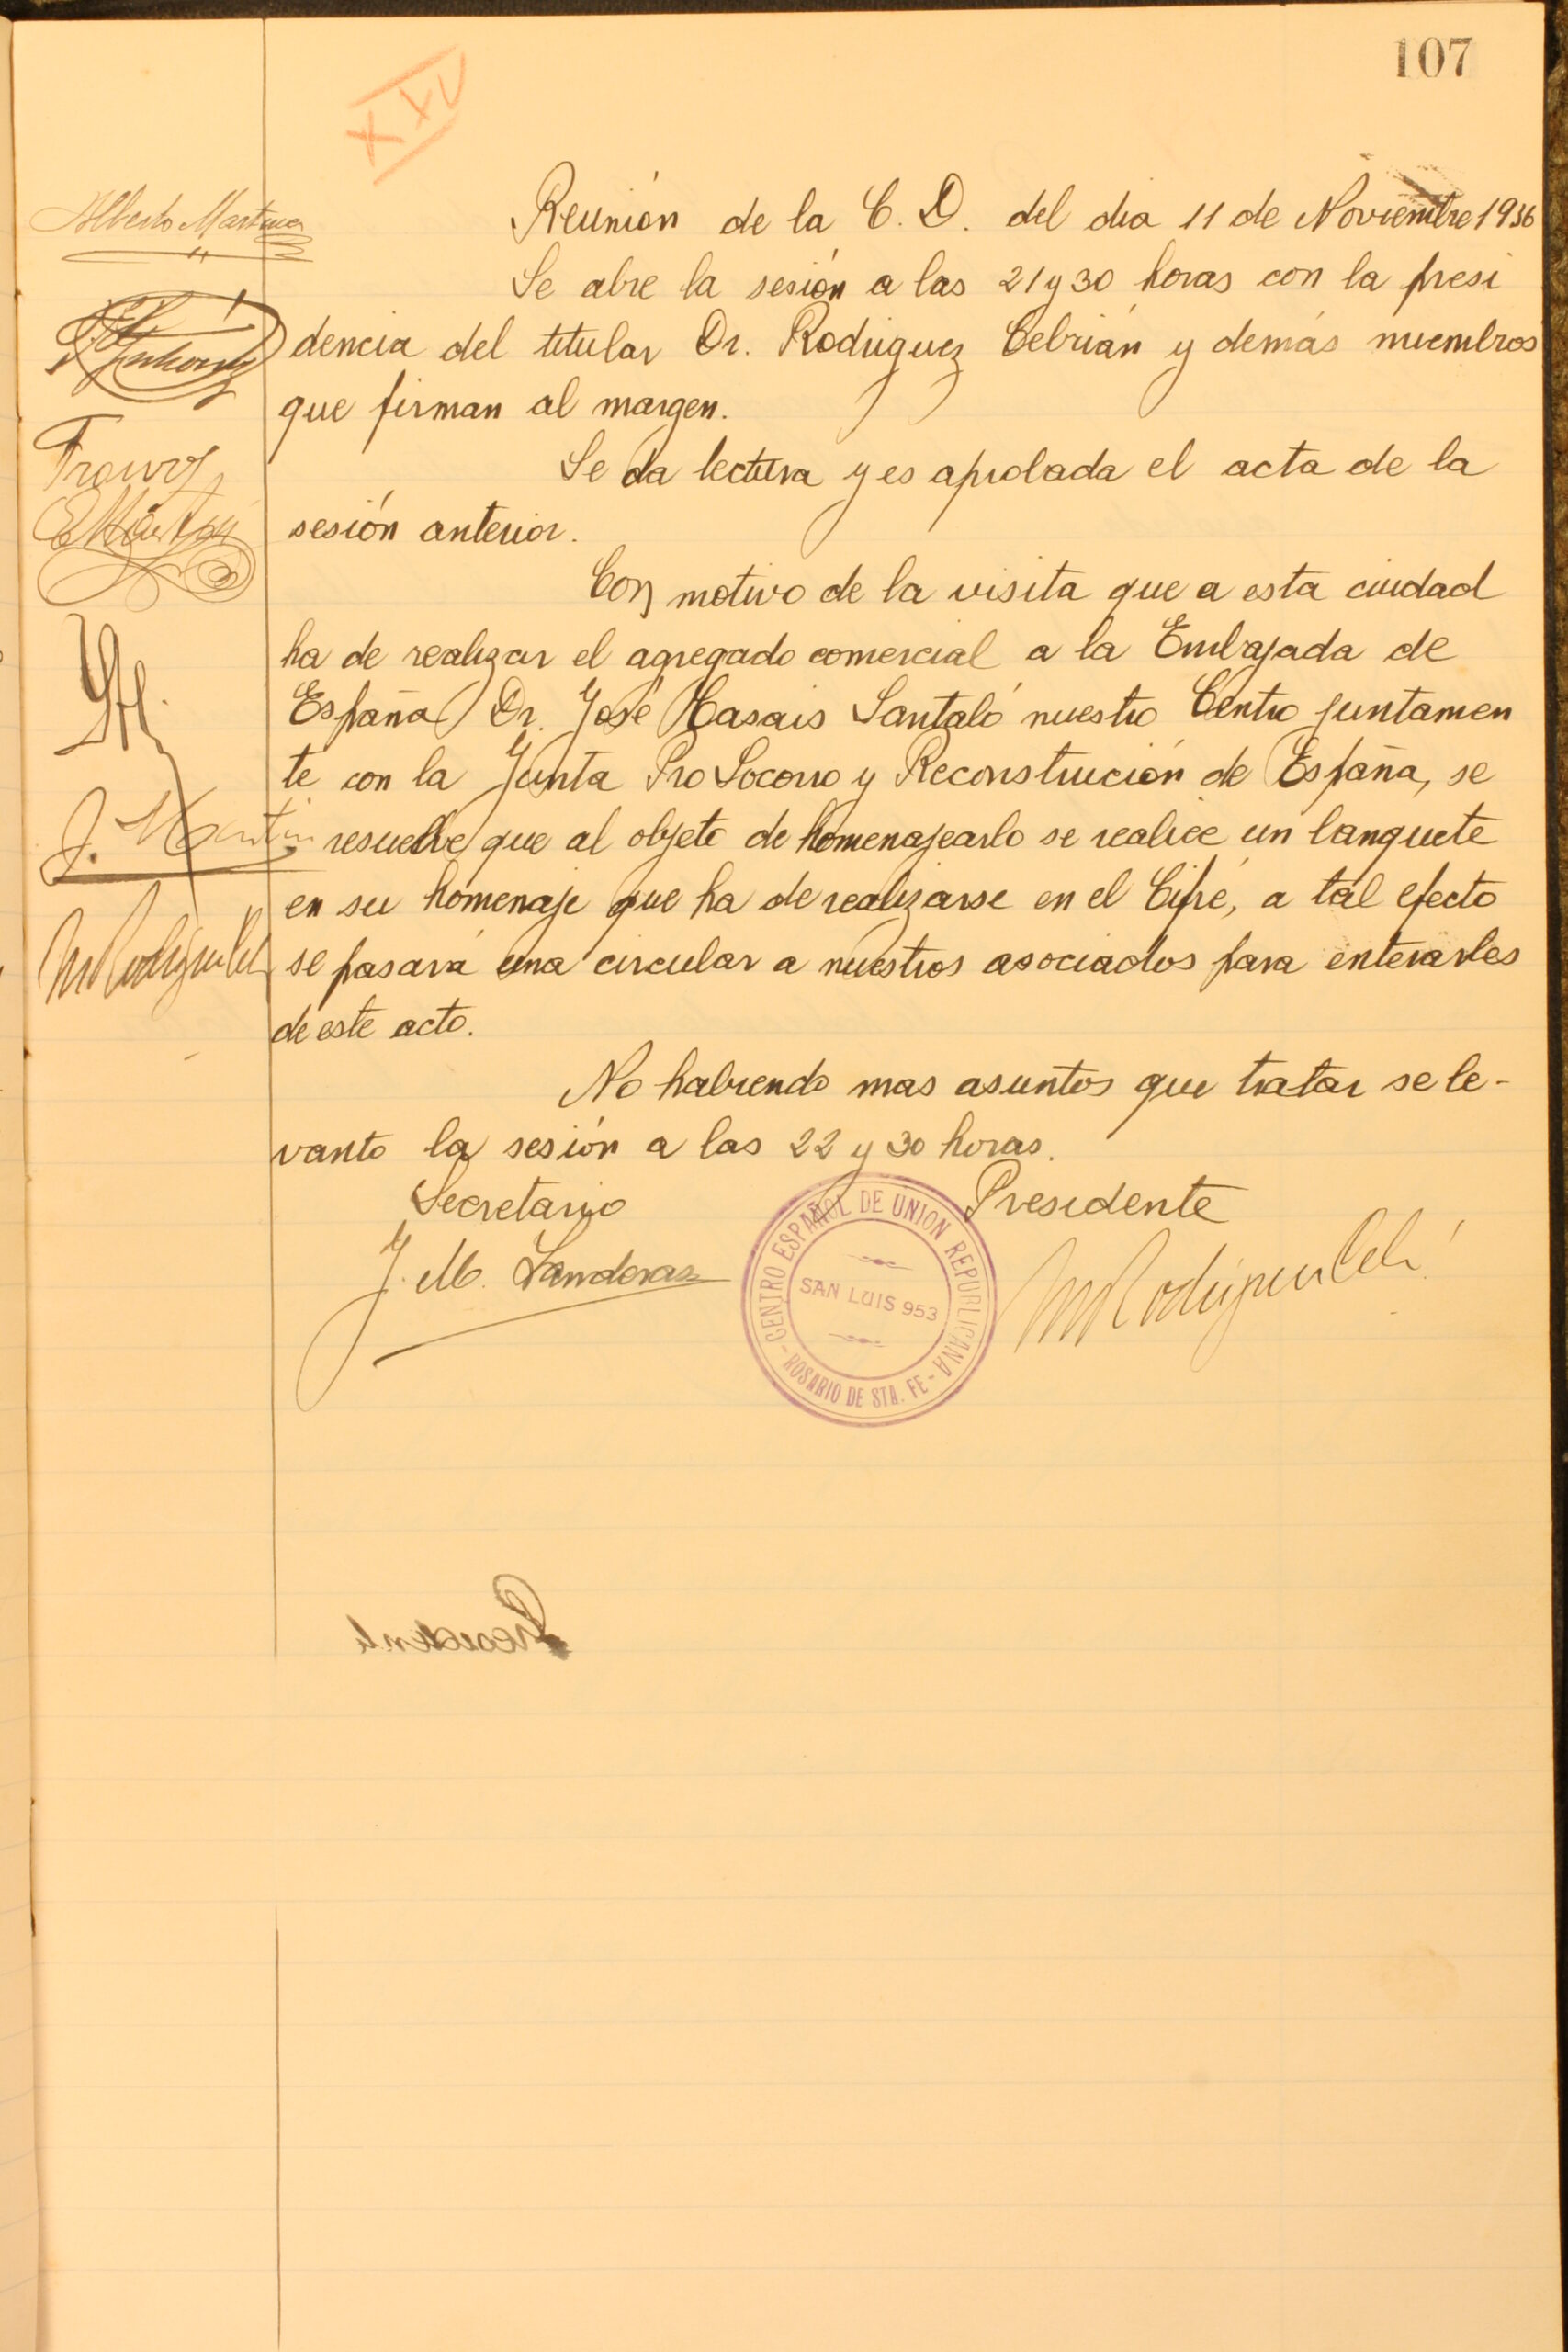 107
XXV
Alberto Martinez
Reunión de la C. D. del dia 11 de Noviembre 1936
Se abre la sesión a las 21 y 30 horas con la presi
dencia del titular Dr. Rodriguez Cebrián y demás miembros
que firman al margen.
Se da lectura y es aprobada el acta de la
sesión anterior.
Con motivo de la visita que a esta ciudad
ha de realizar el agregado comercial a la Embajada de
España Dr. José Casais Santaló nuestro Centro juntamen
te con la Junta Pro Socorro y Reconstrución de España, se
J. Martin
resuelve que al objeto de homenajearlo se realice un banquete
en su homenaje que ha de realizarse en el Cifré, a tal efecto
se pasará una circular a nuestros asociados para enterarles
de este acto.
No habiendo mas asuntos que tratar se le-
vanto la sesión a las 22 y 30 horas.
Secretario
Presidente
J. M. Landeras
CENTRO ESPAÑOL DE UNION REPUBLICANA
SAN LUIS 953
- ROSARIO DE STA. FE -